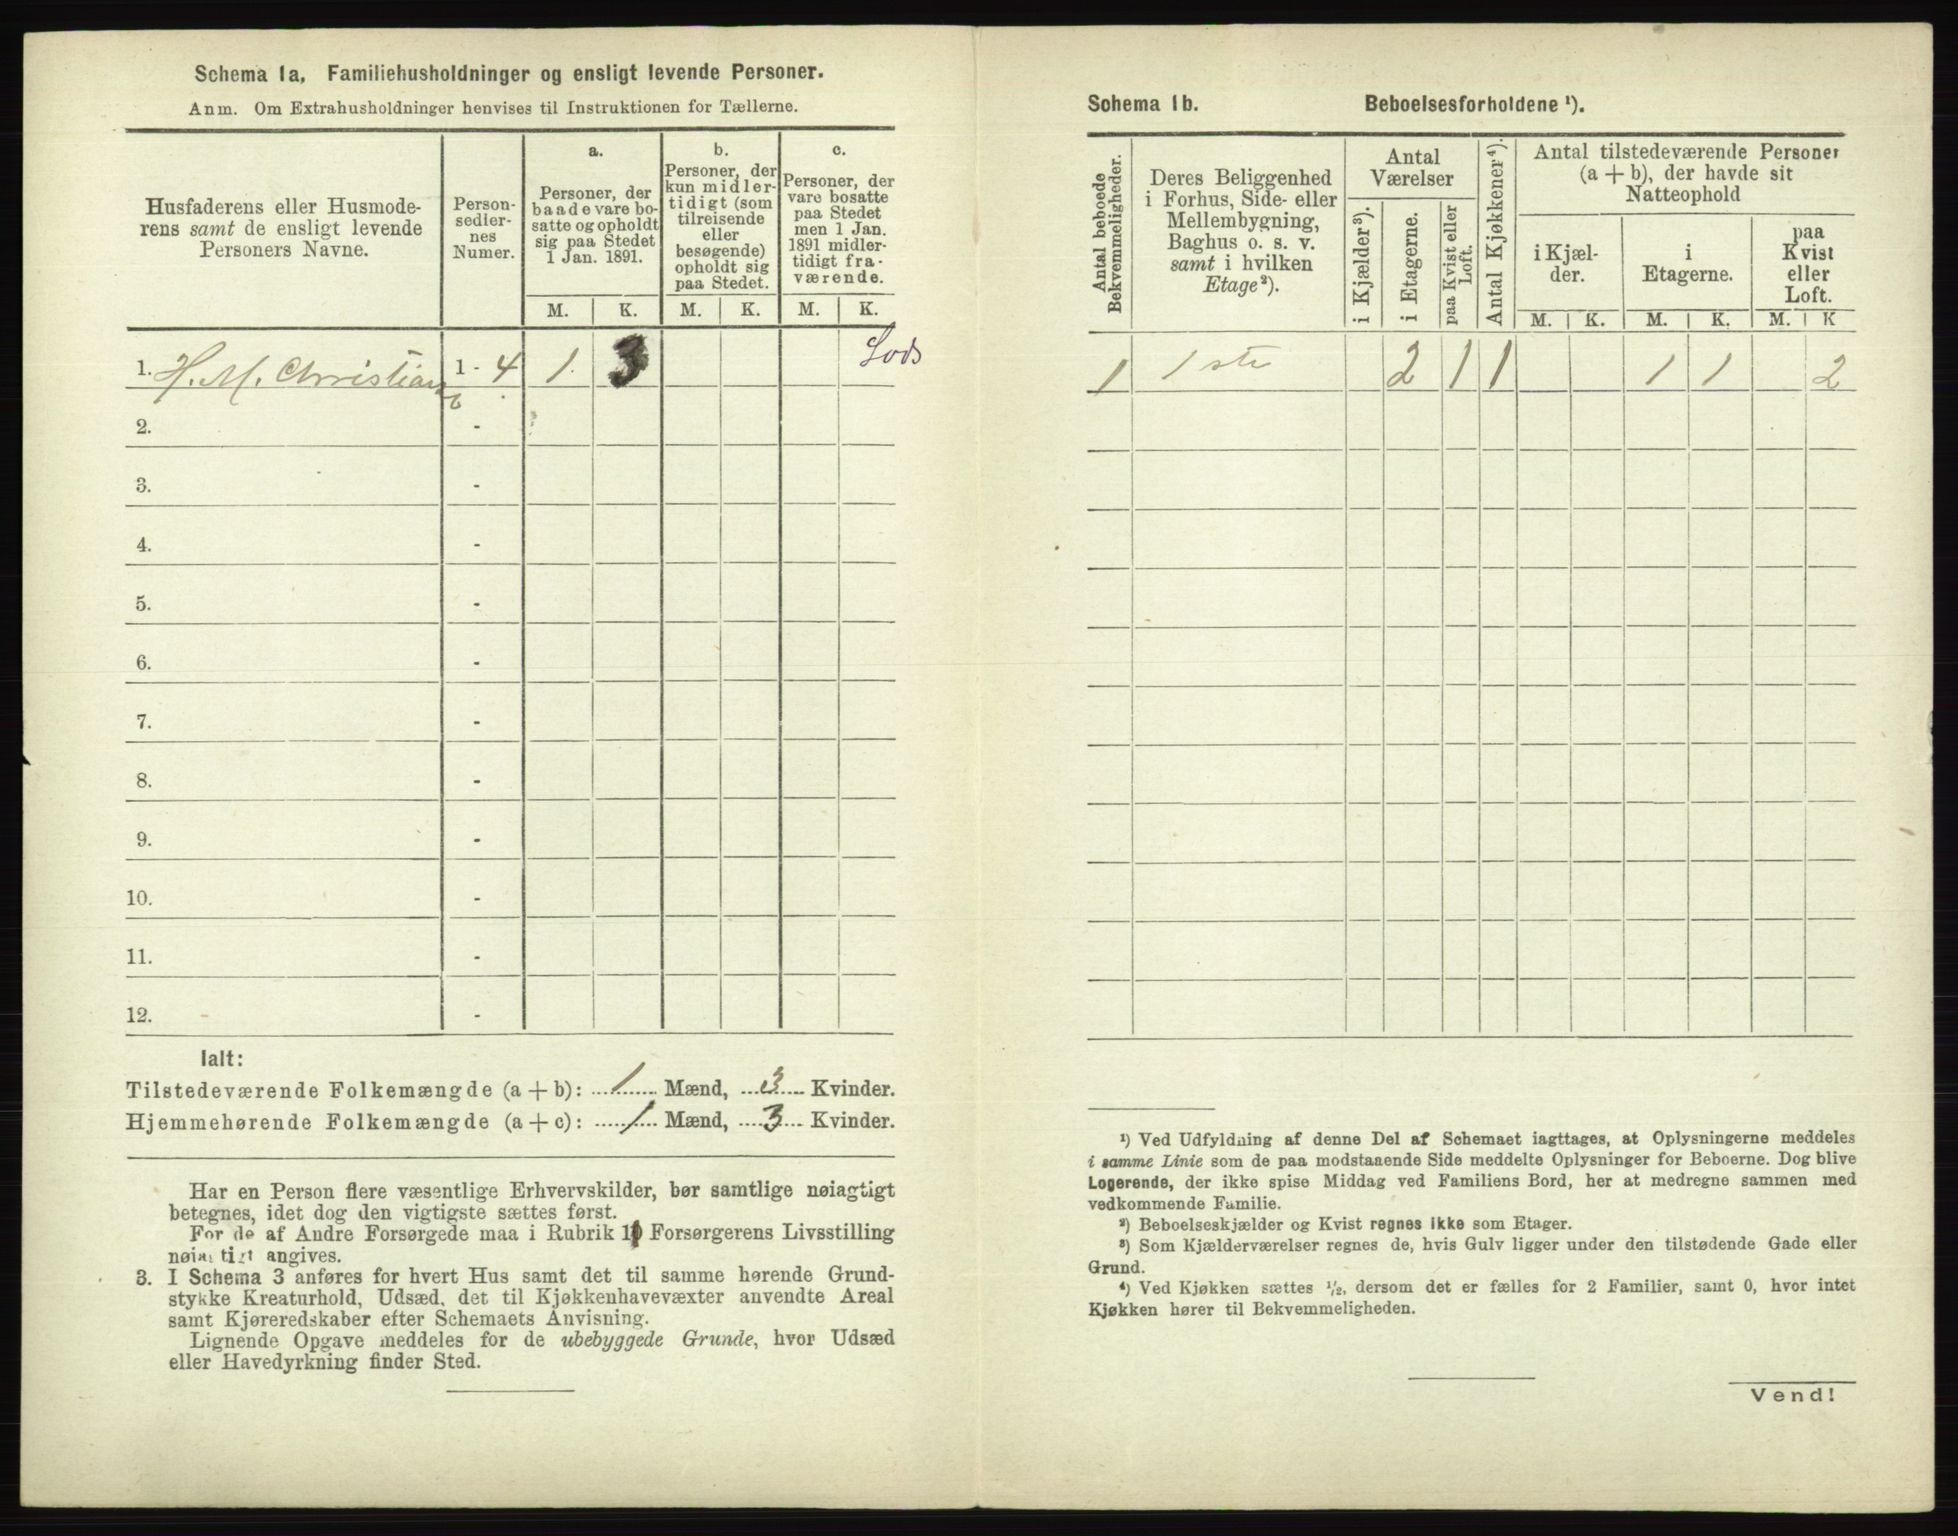 Schema 1a, Familiehusholdninger og ensligt levende Personer.
Anm. Om Extrahusholdninger henvises til Instruktionen for Tællerne.
Husfaderens eller Husmode-
rens samt de ensligt levende
Personers Navne.
Person-
sedler-
nes
Numer.
a.
Personer, der
baade vare bo-
satte og opholdt
sig paa Stedet
1 Jan. 1891.
b.
Personer, der
kun midler-
tidigt (som
tilreisende
eller
besøgende)
opholdt sig
paa Stedet.
c.
Personer, der
vare bosatte
paa Stedet
men 1 Jan.
1891 midler-
tidigt fra-
værende.
M. K. M. K. M. K.
1. H. M. Christian 1 - 4 1. 3 Lods
2. -
3. -
4. -
5. -
6. -
7. -
8. -
9. -
10. -
11. -
12. -
Ialt:
Tilstedeværende Folkemængde (a + b): 1 Mænd, 3 Kvinder.
Hjemmehørende Folkemængde (a + c): 1 Mænd, 3 Kvinder.
Har en Person flere væsentlige Erhvervskilder, bør samtlige nøiagtigt
betegnes, idet dog den vigtigste sættes først.
For de af Andre Forsørgede maa i Rubrik 10 Forsørgerens Livsstilling
nøiagtigt angives.
3. I Schema 3 anføres for hvert Hus samt det til samme hørende Grund-
stykke Kreaturhold, Udsæd, det til Kjøkkenhavevæxter anvendte Areal
samt Kjøreredskaber efter Schemaets Anvisning.
Lignende Opgave meddeles for de ubebyggede Grunde, hvor Udsæd
eller Havedyrkning finder Sted.
Schema 1b. Beboelsesforholdene ¹).
Antal beboede
Bekvemmeligheder.
Deres Beliggenhed
i Forhus, Side- eller
Mellembygning,
Baghus o. s. v.
samt i hvilken
Etage²).
Antal
Værelser
i Kjælder³).
i Etagerne.
paa Kvist eller
Loft.
Antal Kjøkkener⁴).
Antal tilstedeværende Personer
(a + b), der havde sit
Natteophold
i Kjæl-
der.
i
Etagerne.
paa
Kvist
eller
Loft.
M. K. M. K. M. K
1 1 ste 2 1 1 1 1 2
¹) Ved Udfyldning af denne Del af Schemaet iagttages, at Oplysningerne meddeles
i samme Linie som de paa modstaaende Side meddelte Oplysninger for Beboerne. Dog blive
Logerende, der ikke spise Middag ved Familiens Bord, her at medregne sammen med
vedkommende Familie.
²) Beboelseskjælder og Kvist regnes ikke som Etager.
³) Som Kjælderværelser regnes de, hvis Gulv ligger under den tilstødende Gade eller
Grund.
⁴) Ved Kjøkken sættes ½, dersom det er fælles for 2 Familier, samt 0, hvor intet
Kjøkken hører til Bekvemmeligheden.
Vend!